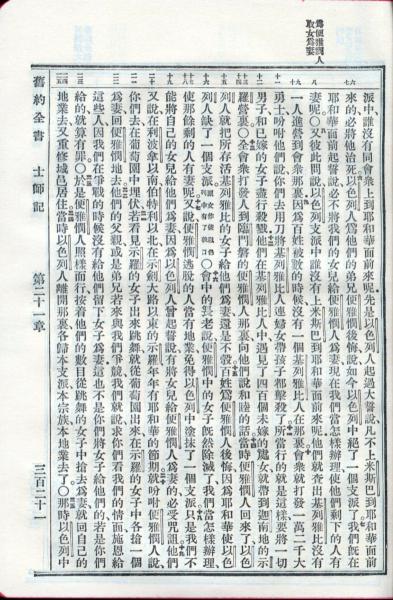 爲便雅憫人
取女爲妻
派中誰沒有同會衆上到耶和華面前來呢先是以色列人起過大誓說凡不上米斯巴到耶和華面前
來的必將他治死以色列人爲他們的弟兄便雅憫後悔說如今以色列中絕了一個支派了我們旣在
耶和華面前起誓說必不將我們的女兒給便雅憫人爲妻現在我們當怎樣辦理使他們剩下的人有
妻呢〇又彼此問說以色列支派中誰沒有上米斯巴到耶和華面前來呢他們就查出基列雅比沒有
一人進營到會衆那裏因爲百姓被數的時候沒有一個基列雅比人在那裏會衆就打發一萬二千大
勇士吩咐他們說你們去用刀將基列雅比人連婦女帶孩子都擊殺了所當行的就是這樣要將一切
男子和已嫁的女子盡行殺戮他們在基列雅比人中遇見了四百個未嫁的處女就帶到迦南地的示
羅營裏〇全會衆打發人到臨門磐的便雅憫人那裏向他們說和睦的話當時便雅憫人回來了以色
列人就把所存活基列雅比的女子給他們爲妻還是不彀百姓爲便雅憫人後悔因爲耶和華使以色
列人缺了一個支派〇會中的長老說便雅憫中的女子旣然除滅了我們當怎樣辦理
使那餘剩的人有妻呢又說便雅憫逃脫的人當有地業免得以色列中塗抹了一個支派只是我們不
能將自己的女兒給他們爲妻因爲以色列人曾起誓說有將女兒給便雅憫人爲妻的必受咒詛他們
又說在利波拿以南伯特利以北在示劍大路以東的示羅年年有耶和華的節期就吩咐便雅憫人說
你們去在葡萄園中埋伏若看見示羅的女子出來跳舞就從葡萄園出來在示羅的女子中各搶一個
爲妻回便雅憫地去他們的父親或是弟兄若來與我們爭競我們就說求你們看我們的情面施恩給
這些人因我們在爭戰的時候沒有給他們留下女子爲妻這也不是你們將女子給他們的若是你們
給的就算有罪〇於是便雅憫人照樣而行按着他們的數目從跳舞的女子中搶去爲妻就回自己的
地業去又重修城邑居住當時以色列人離開那裏各歸本支派本宗族本地業去了〇那時以色列中
舊約全書 士師記 第二十一章 三百二十一